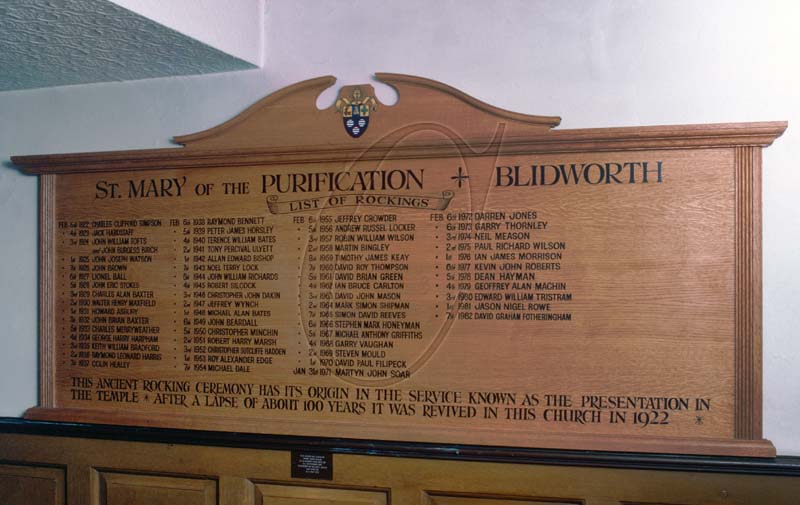 ST. MARY OF THE PURIFICATION + BLIDWORTH
LIST OF ROCKINGS
FEB 5TH 1922 CHARLES CLIFFORD SIMPSON
4TH 1923 JACK HARDSTAFF
3RD 1924 JOHN WILLIAM TOFTS
AND JOHN BURGESS BIRCH
1ST 1925 JOHN JOSEPH WATSON
7TH 1926 JOHN BROWN
6TH 1927 LIONEL BALL
5TH 1928 JOHN ERIC STOKES
3RD 1929 CHARLES ALAN BAXTER
2ND 1930 WALTER HENRY MAXFIELD
1ST 1931 HOWARD ASBURY
7TH 1932 JOHN BRIAN BAXTER
5TH 1933 CHARLES MERRYWEATHER
4TH 1934 GEORGE HARRY HARPHAM
3RD 1935 KEITH WILLIAM BRADFORD
2ND 1936 RAYMOND LEONARD HARRIS
7TH 1937 COLIN HEALEY
FEB 6TH 1938 RAYMOND BENNETT
5TH 1939 PETER JAMES HORSLEY
4TH 1940 TERENCE WILLIAM BATES
2ND 1941 TONY PERCIVAL ULYETT
1ST 1942 ALLAN EDWARD BISHOP
7TH 1943 NOEL TERRY LOCK
6TH 1944 JOHN WILLIAM RICHARDS
4TH 1945 ROBERT SILCOCK
3RD 1946 CHRISTOPHER JOHN DAKIN
2ND 1947 JEFFREY WYNCH
1ST 1948 MICHAEL ALAN BATES
6TH 1949 JOHN BEARDALL
5TH 1950 CHRISTOPHER MINCHIN
2ND 1951 ROBERT HARRY MARSH
3RD 1952 CHRISTOPHER SUTCLIFFE HADDEN
1ST 1953 ROY ALEXANDER EDGE
7TH 1954 MICHAEL DALE
FEB 6TH 1955 JEFFREY CROWDER
5TH 1956 ANDREW RUSSEL LOCKER
3RD 1957 ROBIN WILLIAM WILSON
2ND 1958 MARTIN BINGLEY
1ST 1959 TIMOTHY JAMES KEAY
7TH 1960 DAVID ROY THOMPSON
5TH 1961 DAVID BRIAN GREEN
4TH 1962 IAN BRUCE CARLTON
3RD 1963 DAVID JOHN MASON
2ND 1964 MARK SIMON SHIPMAN
7TH 1965 SIMON DAVID REEVES
6TH 1966 STEPHEN MARK HONEYMAN
5TH 1967 MICHAEL ANTHONY GRIFFITHS
4TH 1968 GARRY VAUGHAN
2ND 1969 STEVEN MOULD
1ST 1970 DAVID PAUL FILIPECK
JAN 31ST 1971 MARTYN JOHN SOAR
FEB 6TH 1972 DARREN JONES
4TH 1973 GARRY THORNLEY
3RD 1974 NEIL MEASON
2ND 1975 PAUL RICHARD WILSON
1ST 1976 IAN JAMES MORRISON
6TH 1977 KEVIN JOHN ROBERTS
5TH 1978 DEAN HAYMAN
4TH 1979 GEOFFREY ALAN MACHIN
3RD 1980 EDWARD WILLIAM TRISTRAM
1ST 1981 JASON NIGEL ROWE
7TH 1982 DAVID GRAHAM FOTHERINGHAM
THIS ANCIENT ROCKING CEREMONY HAS ITS ORIGIN IN THE SERVICE KNOWN AS THE PRESENTATION IN
THE TEMPLE * AFTER A LAPSE OF ABOUT 100 YEARS IT WAS REVIVED IN THIS CHURCH IN 1922 *